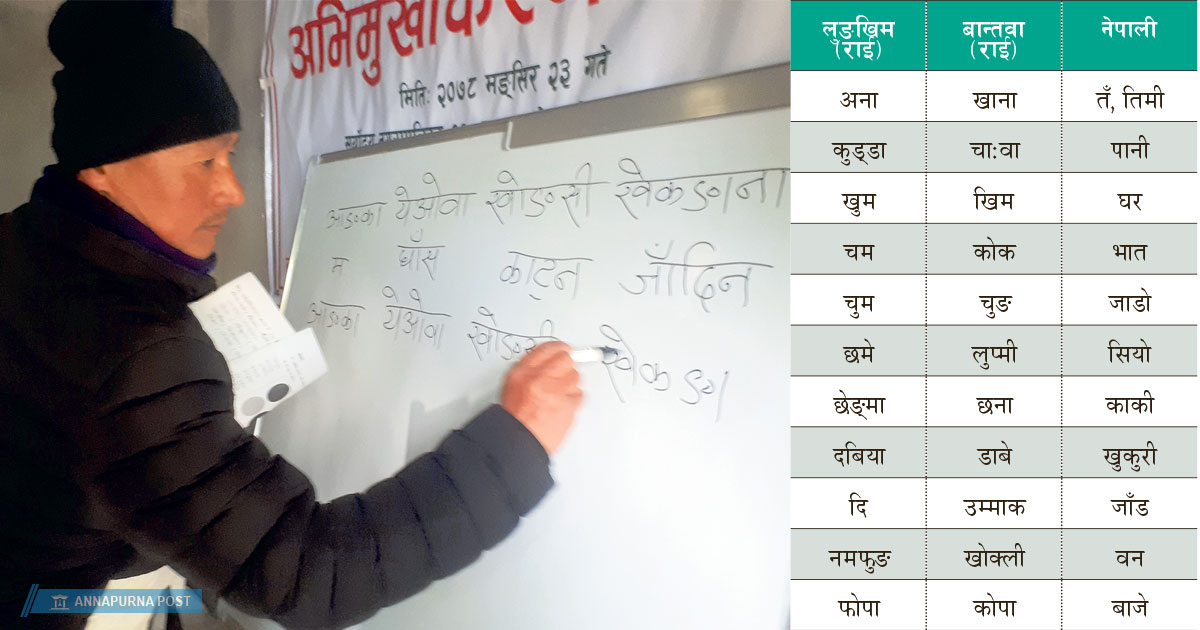 अभिमुखीकरण
मितिः २०७८ मङ्सिर २३ गते
आङका येओवा खोङसी खेकङाना
म घाँस काट्न जाँदिन
आङका येओवा खोङसी खेकङा
ANNAPURNA POST
लुङखिम (राई) बान्तवा (राई) नेपाली
अना खाना तँ, तिमी
कुड्डा चाःवा पानी
खुम खिम घर
चम कोक भात
चुम चुङ जाडो
छमे लुप्मी सियो
छेङ्मा छना काकी
दबिया डाबे खुकुरी
दि उम्माक जाँड
नमफुङ खोक्ली वन
फोपा कोपा बाजे